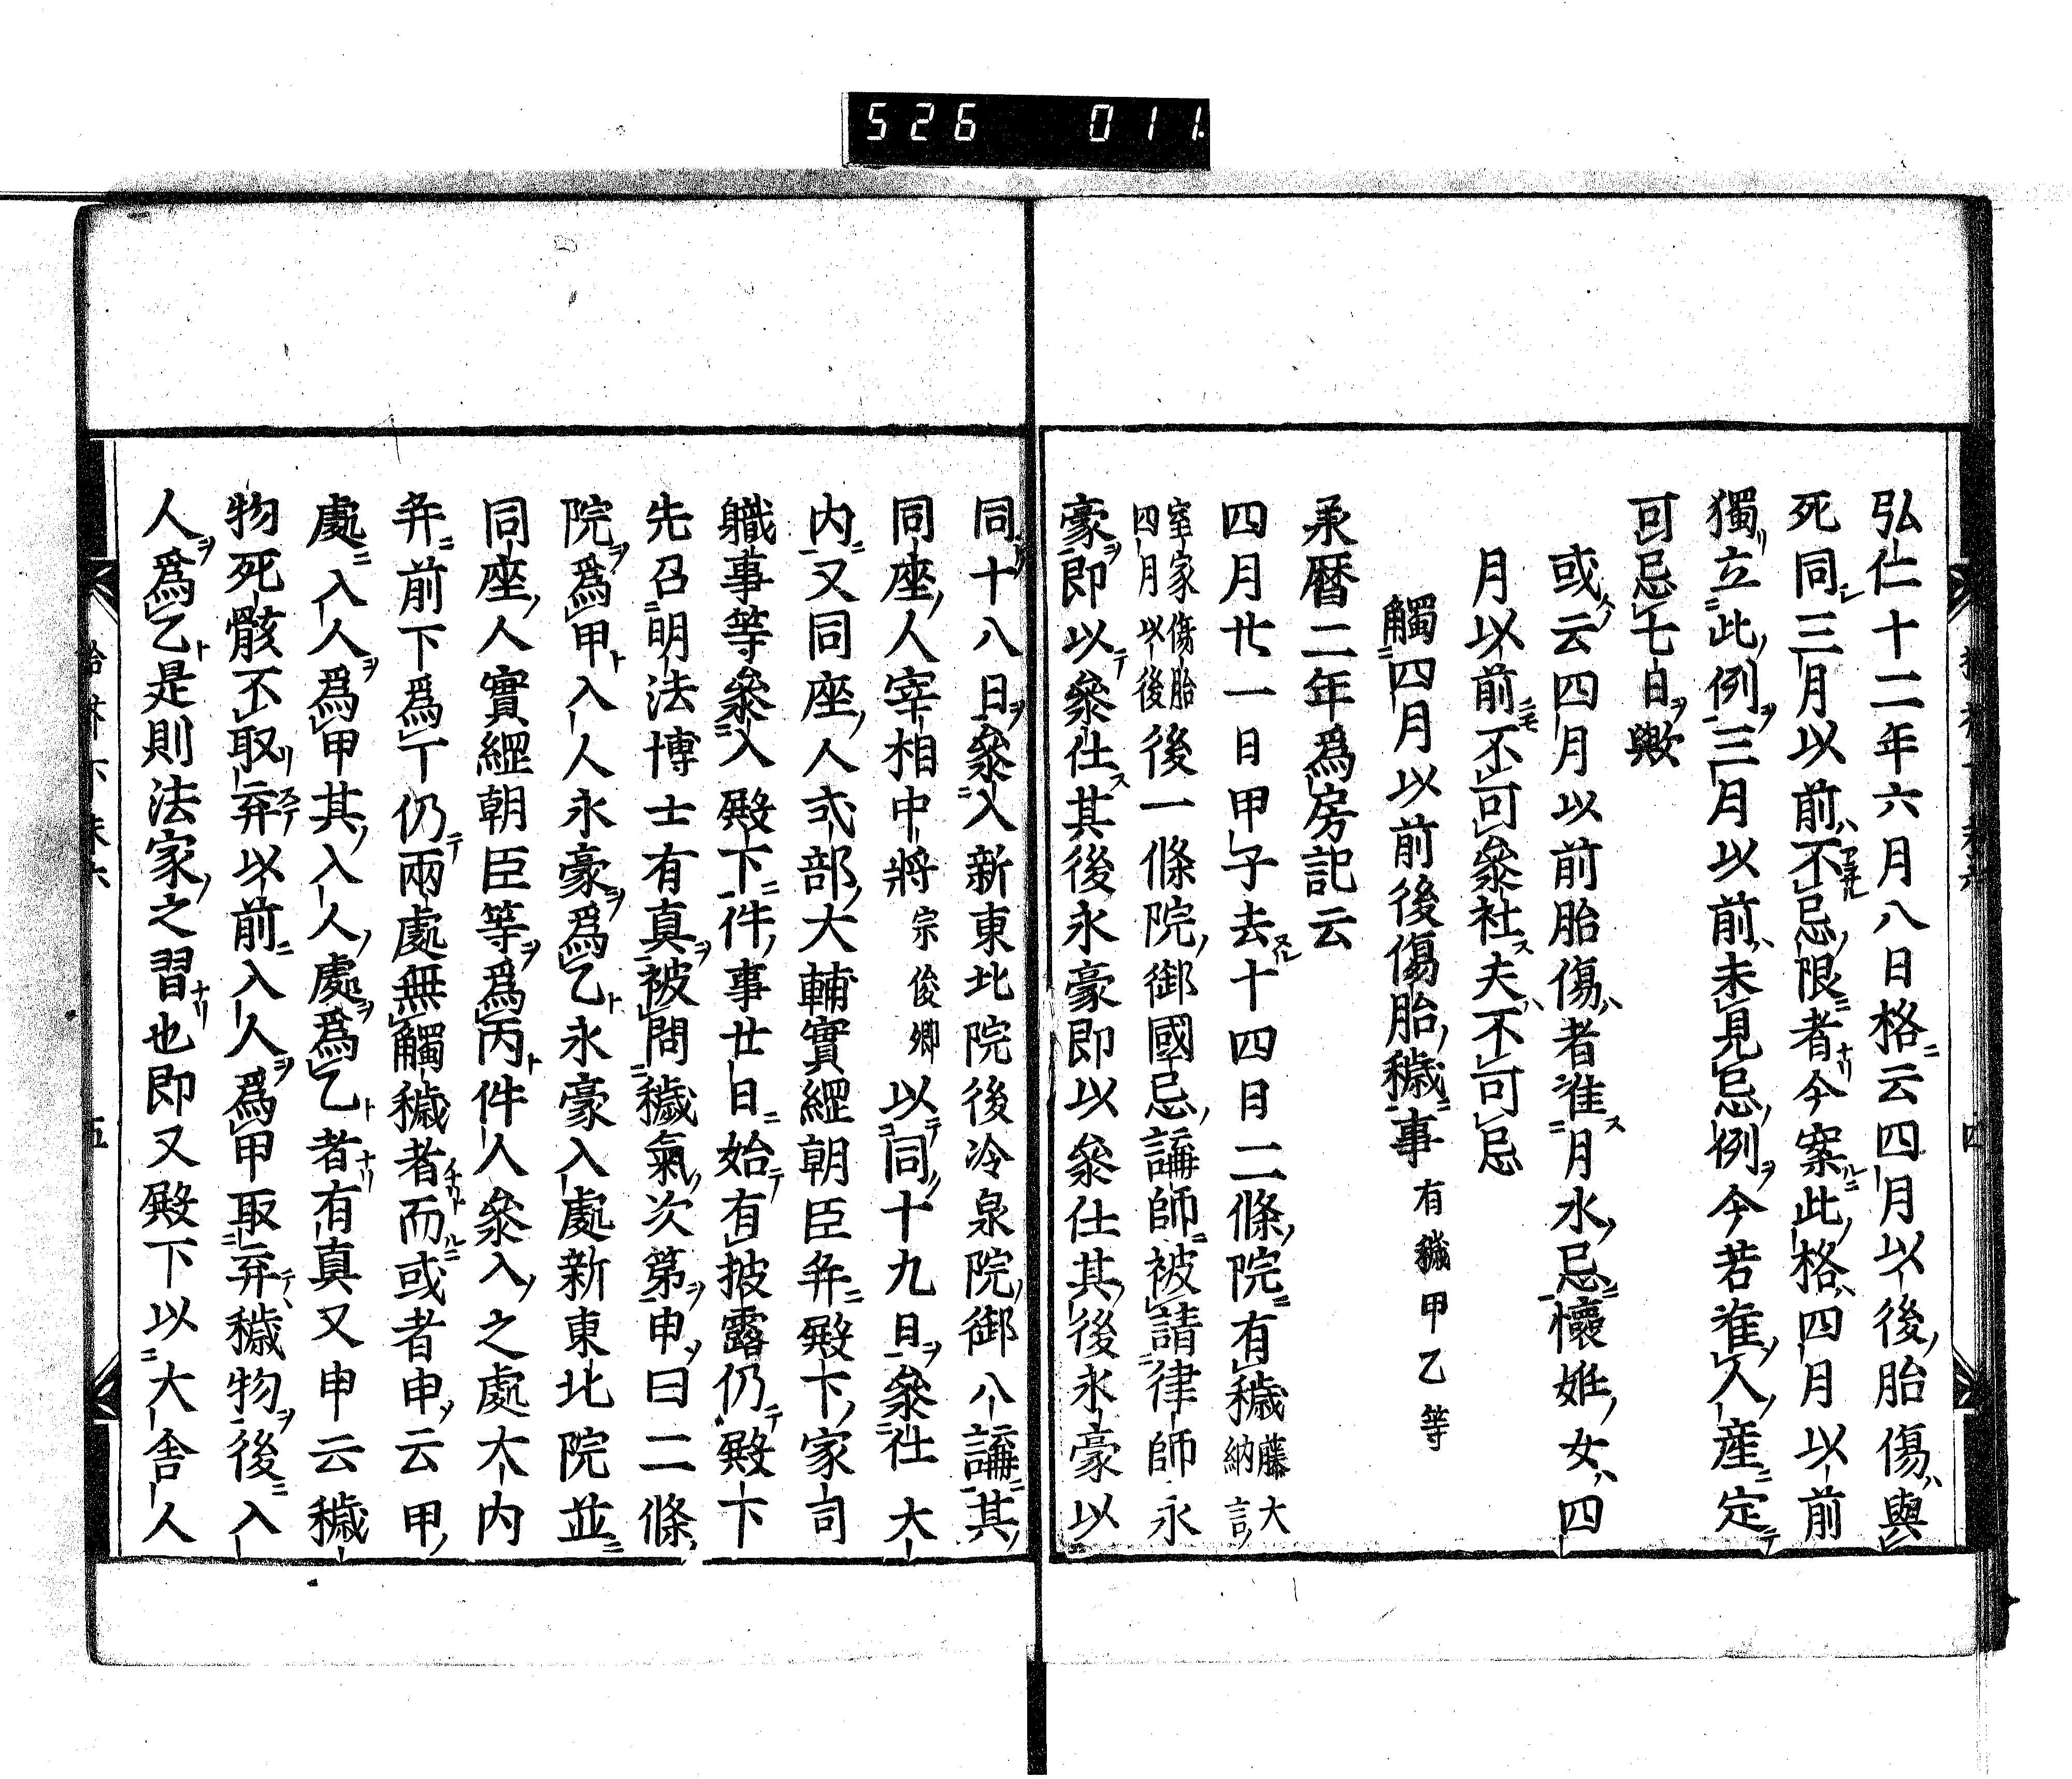 526 011
弘仁十二年六月八日格云四月以後胎傷與
死同三月以前不忌限者今案此格四月以前
獨立此例三月以前未見忌例今若准人産定
可忌七日歟
或云四月以前胎傷者准月水忌懷妊女四
月以前不可參社夫不可忌
觸四月以前後傷胎穢事 有穢甲乙等
承暦二年爲房記云
四月廿一日甲子去十四月二條院有穢 藤大納言
室家傷胎四月以後 後一條院御國忌講師被請律師永
豪即以參仕其後永豪即以參仕其後永豪以
同十八日參入新東北院後冷泉院御八講其
同座人宰相中將 宗俊卿 以同十九日參社大
内又同座人式部大輔實經朝臣并殿下家司
職事等參入殿下件事廿日始有披露仍殿下
先召明法博士有真被問穢氣次第申曰二條
院爲甲入人永豪爲乙永豪入處新東北院並
同座人實經朝臣等爲丙件人參入之處大内
并前下爲丁仍兩處無觸穢者而或者申云甲
處入人爲甲其入人處爲乙者有真又申云穢
物死骸不取弃以前入人爲甲取弃穢物後入
人爲乙是則法家之習也即又殿下以大舎人
四
五